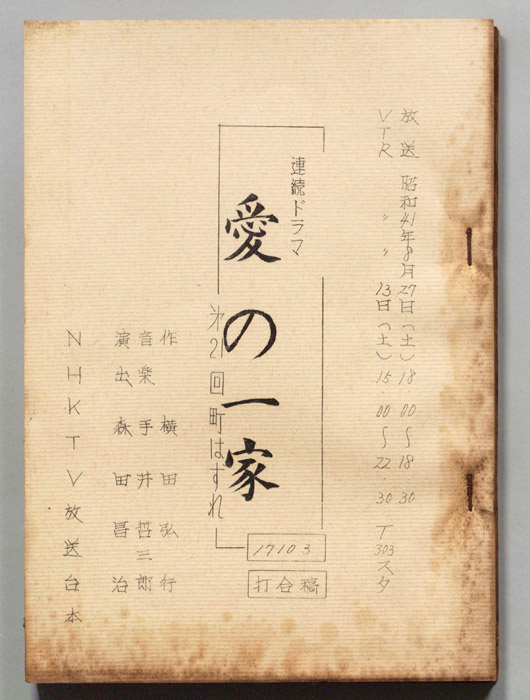 放送 昭和41年8月27日(土) 18 00〜18 30
VTR 〃 〃 13日(土) 15 00〜22.30 T303スタ
連続ドラマ
愛の一家
第21回 町はずれ
17103
打合稿
作 横田弘行
音楽 手井哲三郎
演出 森田昌治
NHKTV放送台本